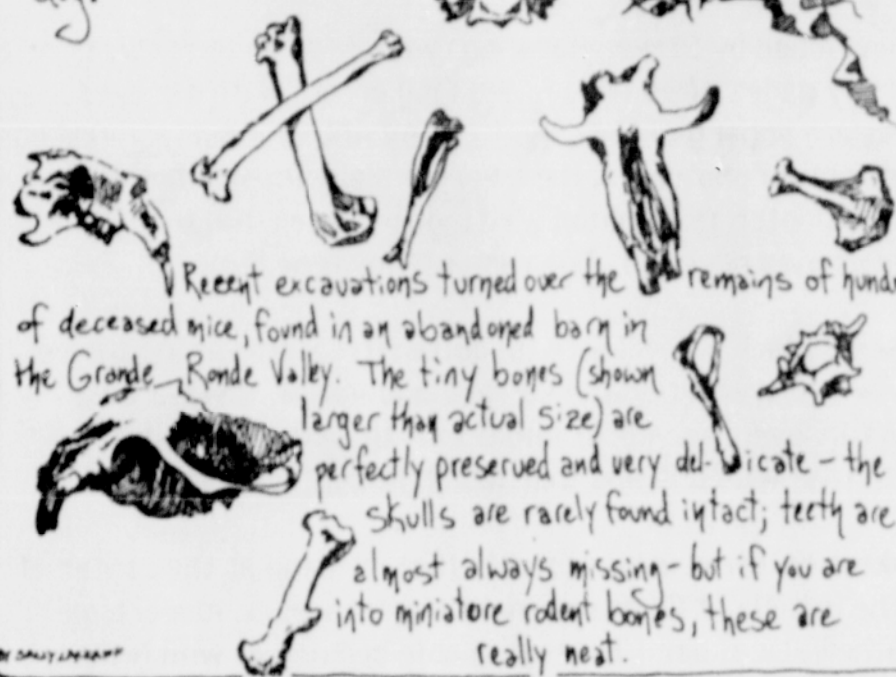 Recent excavations turned over the remains of hundr
of deceased mice, found in an abandoned barn in
the Grande Ronde Valley. The tiny bones (shown
larger than actual size) are
perfectly preserved and very del-icate - the
skulls are rarely found intact; teeth are
almost always missing - but if you are
into miniatore rodent bones, these are
really neat.